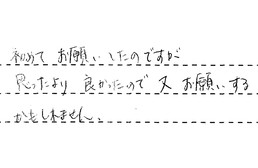 初めてお願いしたのですが
思ったより良かったので又お願いする
かもしれません、